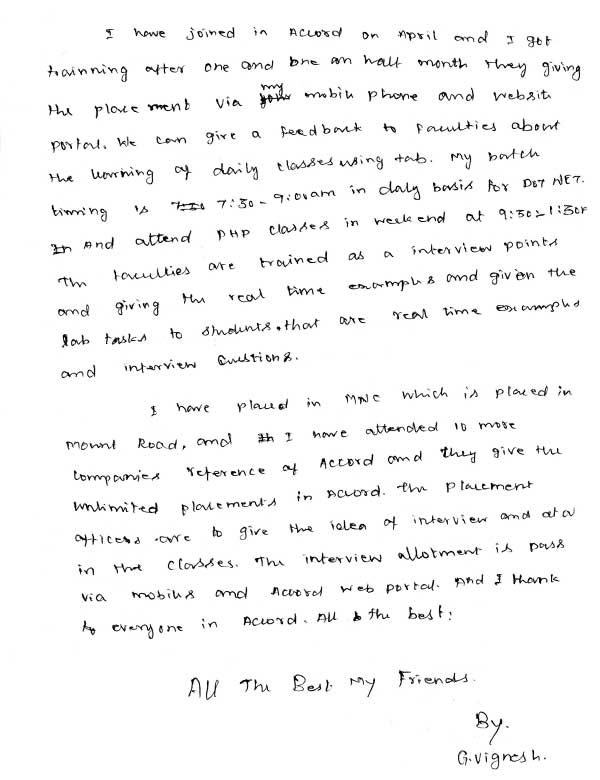 I have joined in Accord on April and I got
trainning after one and one an half month they giving
the place ment via my mobile phone and website
portal. We can give a feedback to faculties about
the learning of daily classes using tab. My batch
timing is 7:30 - 9:00am in daly basis for DOT NET.
And attend PHP classes in weekend at 9:30 - 1:30P
The faculties are trained as a interview points
and giving the real time examples and given the
lab tasks to students. that are real time examples
and interview Questions.
I have placed in MNC which is placed in
Mount Road, and I have attended 10 more
Companies reference of Accord and they give the
unlimited placements in Accord. The Placement
officers are to give the idea of interview and
in the Classes. The interview allotment is pass
via mobiles and Accord web portal. And I thank
to everyone in Accord. All the best!
All The Best My Friends.
By.
G.Vignesh.